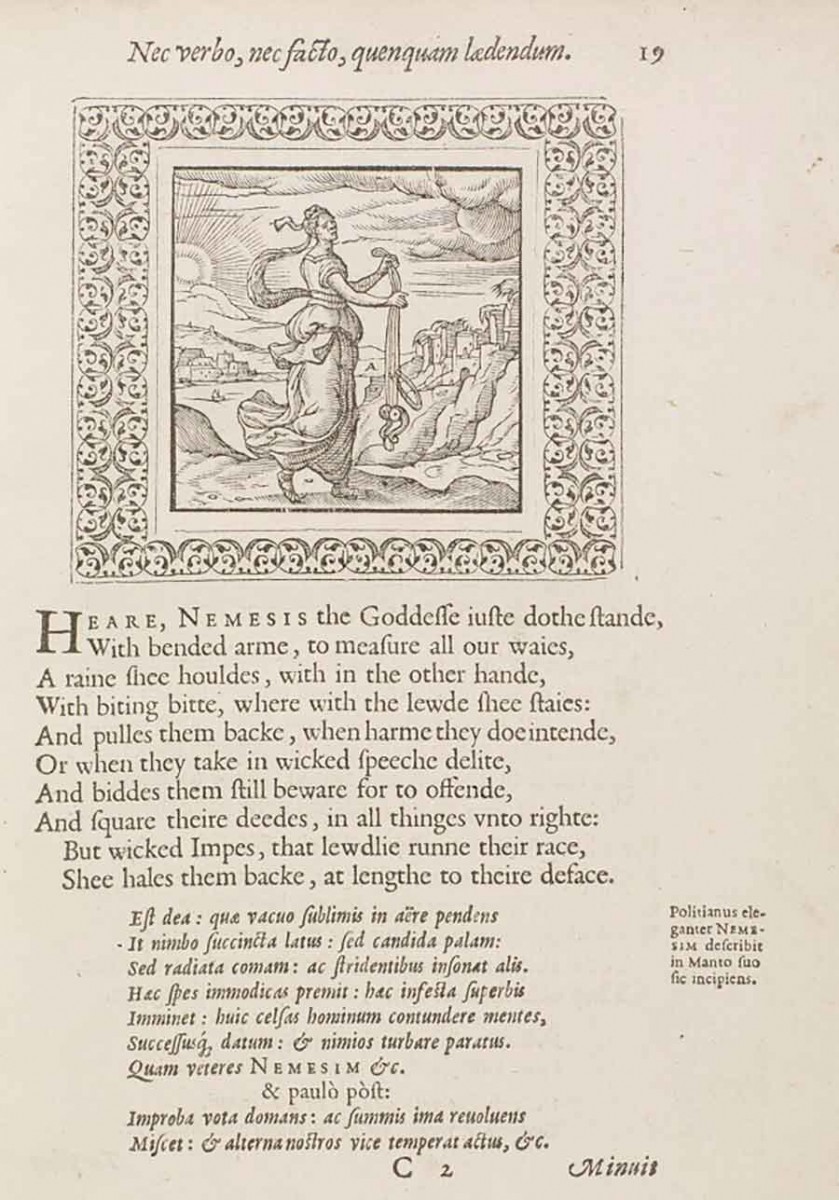 Nec verbo, nec facto, quenquam lædendum. 19
HEARE, NEMESIS the Goddeſſe iuſte dothe ſtande,
With bended arme, to meaſure all our waies,
A raine ſhee houldes, with in the other hande,
With biting bitte, where with the lewde ſhee ſtaies:
And pulles them backe, when harme they doe intende,
Or when they take in wicked ſpeeche delite,
And biddes them ſtill beware for to offende,
And ſquare theire deedes, in all thinges vnto righte:
But wicked Impes, that lewdlie runne their race,
Shee hales them backe, at lengthe to theire deface.
Eſt dea: quæ vacuo ſublimis in aëre pendens
It nimbo ſuccincta latus: ſed candida palam:
Sed radiata comam: ac ſtridentibus inſonat alis.
Hæc ſpes immodicas premit: hæc infeſta ſuperbis
Imminet: huic celſas hominum contundere mentes,
Succeſſusq́; datum: & nimios turbare paratus.
Quam veteres NEMESIM &c.
& paulò pòſt:
Improba vota domans: ac ſummis ima reuoluens
Miſcet: & alterna noſtros vice temperat actus, &c.
Politianus ele-
ganter NEME-
SIM deſcribit
in Manto ſuo
ſic incipiens.
C 2 Minuit